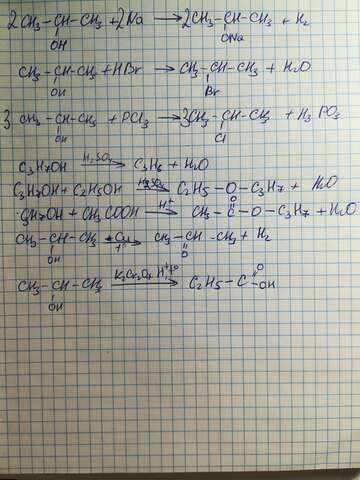 2CH₃-CH-CH₃ + 2Na → 2CH₃-CH-CH₃ + H₂
OH ONa
CH₃-CH-CH₃ + HBr → CH₃-CH-CH₃ + H₂O
OH Br
3 CH₃-CH-CH₃ + PCl₃ → 3CH₃-CH-CH₃ + H₃PO₃
OH Cl
C₃H₇OH H₂SO₄ → C₃H₆ + H₂O
C₃H₇OH + C₂H₅OH H₂SO₄ → C₂H₅-O-C₃H₇ + H₂O
C₃H₇OH + CH₃COOH H⁺ → CH₃-C-O-C₃H₇ + H₂O
O
CH₃-CH-CH₃ + Cu t° → CH₃-CH-CH₃ + H₂
OH O
CH₃-CH-CH₃ K₂Cr₂O₇ H⁺t° → C₂H₅-C O OH
OH